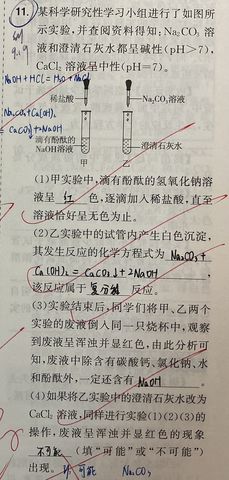 11. 某科学研究性学习小组进行了如图所
示实验,并查阅资料得知:Na₂CO₃ 溶
液和澄清石灰水都呈碱性(pH>7),
CaCl₂ 溶液呈中性(pH=7)。
NaOH+HCl=H₂O+NaCl
稀盐酸
Na₂CO₃溶液
Na₂CO₃+Ca(OH)₂
=CaCO₃↓+NaOH
滴有酚酞的
NaOH溶液
澄清石灰水
甲
乙
(1)甲实验中,滴有酚酞的氢氧化钠溶
液呈 红 色,逐滴加入稀盐酸,直至
溶液恰好呈无色为止。
(2)乙实验中的试管内产生白色沉淀,
其发生反应的化学方程式为 Na₂CO₃+
Ca(OH)₂=CaCO₃↓+2NaOH ,
该反应属于 复分解 反应。
(3)实验结束后,同学们将甲、乙两个
实验的废液倒入同一只烧杯中,观察
到废液呈浑浊并显红色,由此分析可
知,废液中除含有碳酸钙、氯化钠、水
和酚酞外,一定还含有 NaOH 。
(4)如果将乙实验中的澄清石灰水改为
CaCl₂ 溶液,同样进行实验(1)(2)(3)的
操作,废液呈浑浊并显红色的现象
不可能 (填“可能”或“不可能”)
出现。 可能 Na₂CO₃